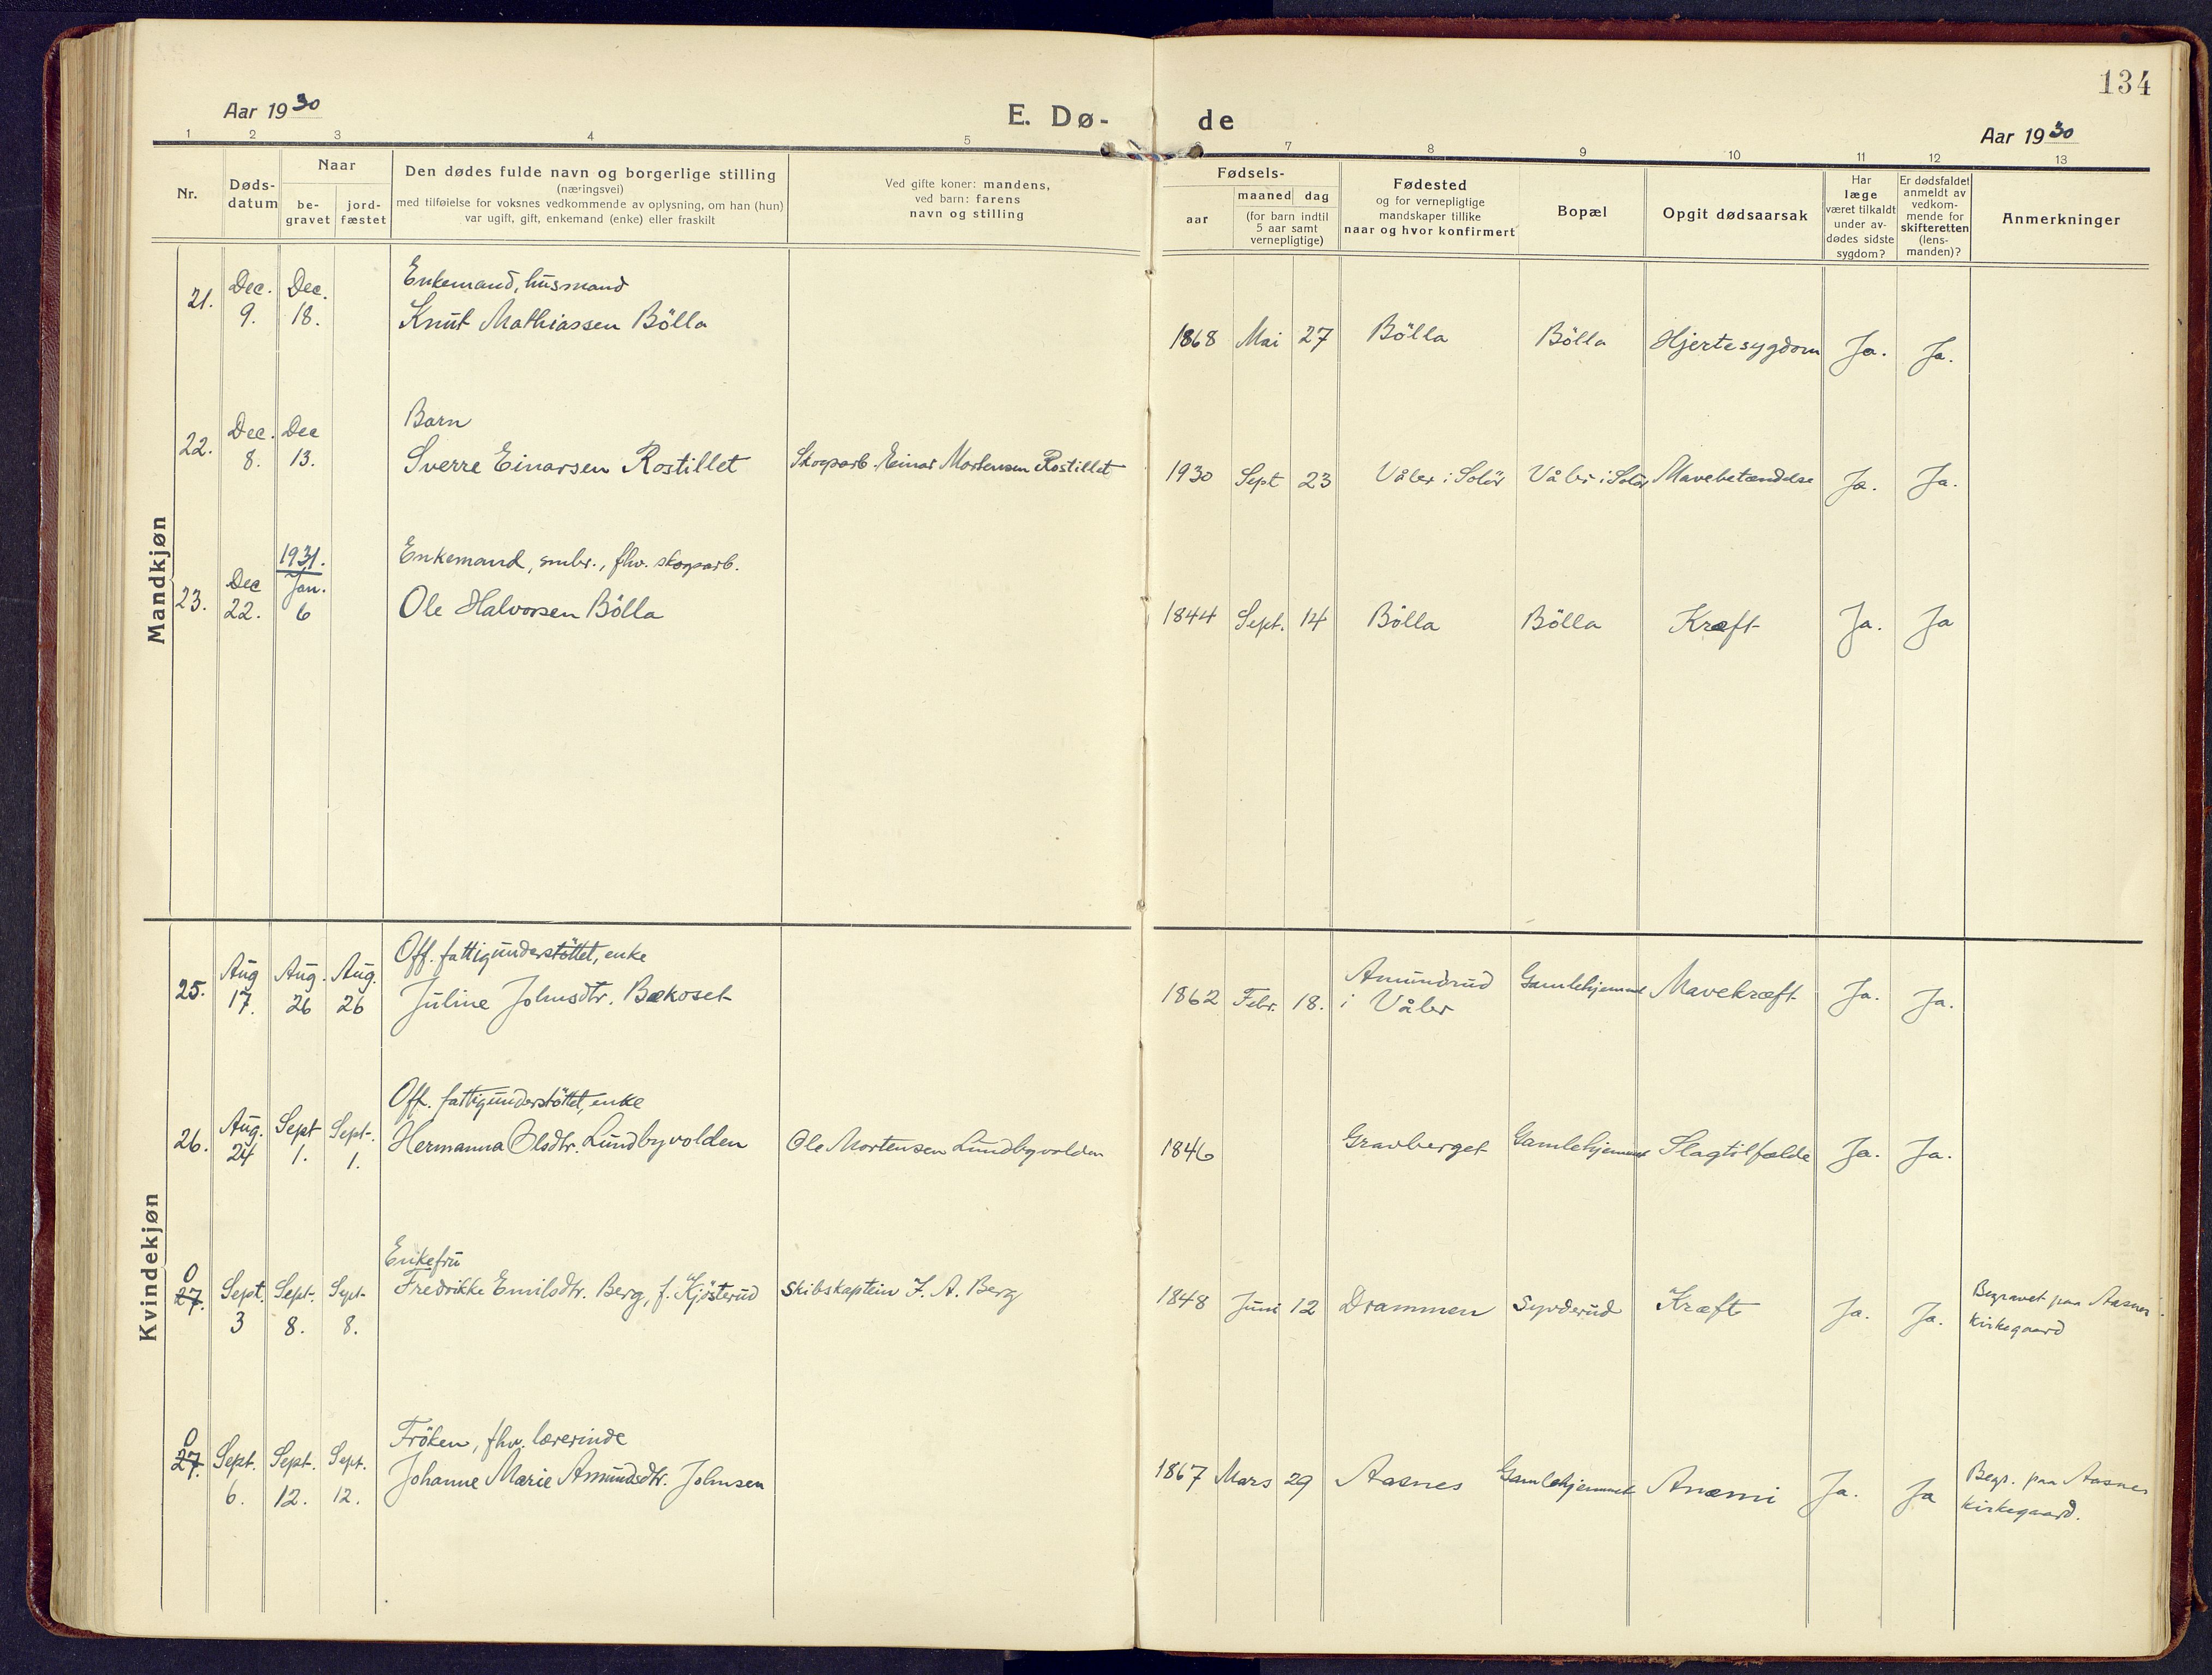 134
Aar 1930
E. Dø-
de
Aar 1930
1 2 3 4 5 6 7 8 9 10 11 12 13
Nr.
Døds-
datum
Naar
be-
gravet
jord-
fæstet
Den dødes fulde navn og borgerlige stilling
(næringsvei)
med tilføielse for voksnes vedkommende av oplysning, om han (hun)
var ugift, gift, enkemand (enke) eller fraskilt
Ved gifte koner: mandens,
ved barn: farens
navn og stilling
Fødsels-
aar
maaned dag
(for barn indtil
5 aar samt
vernepligtige)
Fødested
og for vernepligtige
mandskaper tillike
naar og hvor konfirmert
Bopæl
Opgit dødsaarsak
Har
læge
været tilkaldt
under av-
dødes sidste
sygdom?
Er dødsfaldet
anmeldt av
vedkom-
mende for
skifteretten
(lens-
manden)?
Anmerkninger
Mandkjøn
Enkemand, husmand
21. Dec. 9. Dec. 18. Knut Mathiassen Bölla 1868 Mai 27 Bölla Bölla Hjertesygdom Ja. Ja.
Barn
22. Dec. 8. Dec 13. Sverre Einarsen Rostillet Skogsarb. Einar Mortensen Rostillet 1930 Sept 23 Våler i Solör Våler i Solör Mavebetændelse Ja. Ja.
Enkemand, smbr., fhv. skogsarb.
23. Dec 22. 1931. Jan. 6 Ole Halvorsen Bölla 1844 Sept. 14 Bölla Bölla Kræft Ja. Ja
Kvindekjøn
Off. fattigunderstöttet, enke
25. Aug 17. Aug. 26 Aug. 26 Juline Johnsdtr. Bækoset 1862 Febr. 18. Amundrud i Våler Gamlehjemmet Mavekræft Ja. Ja.
Off. fattigunderstöttet, enke
26. Aug. 24 Sept 1. Sept. 1. Hermanna Olsdtr. Lundbyvolden Ole Mortensen Lundbyvolden 1846 Gravberget Gamlehjemmet Slagtilfælde Ja. Ja.
Enkefru
0 27. Sept. 3 Sept. 8. Sept. 8. Fredrikke Emilsdtr. Berg, f. Kjösterud Skibskaptein F. A. Berg 1848 Juni 12 Drammen Synderud Kræft Ja. Ja. Begravet paa Aasnes kirkegaard
Fröken, fhv. lærerinde
0 27. Sept. 6. Sept. 12. Sept. 12. Johanne Marie Amundsdtr. Johnsen 1867 Mars 29 Aasnes Gamlehjemmet Anæmi Ja. Ja Begr. paa Aasnes kirkegaard.